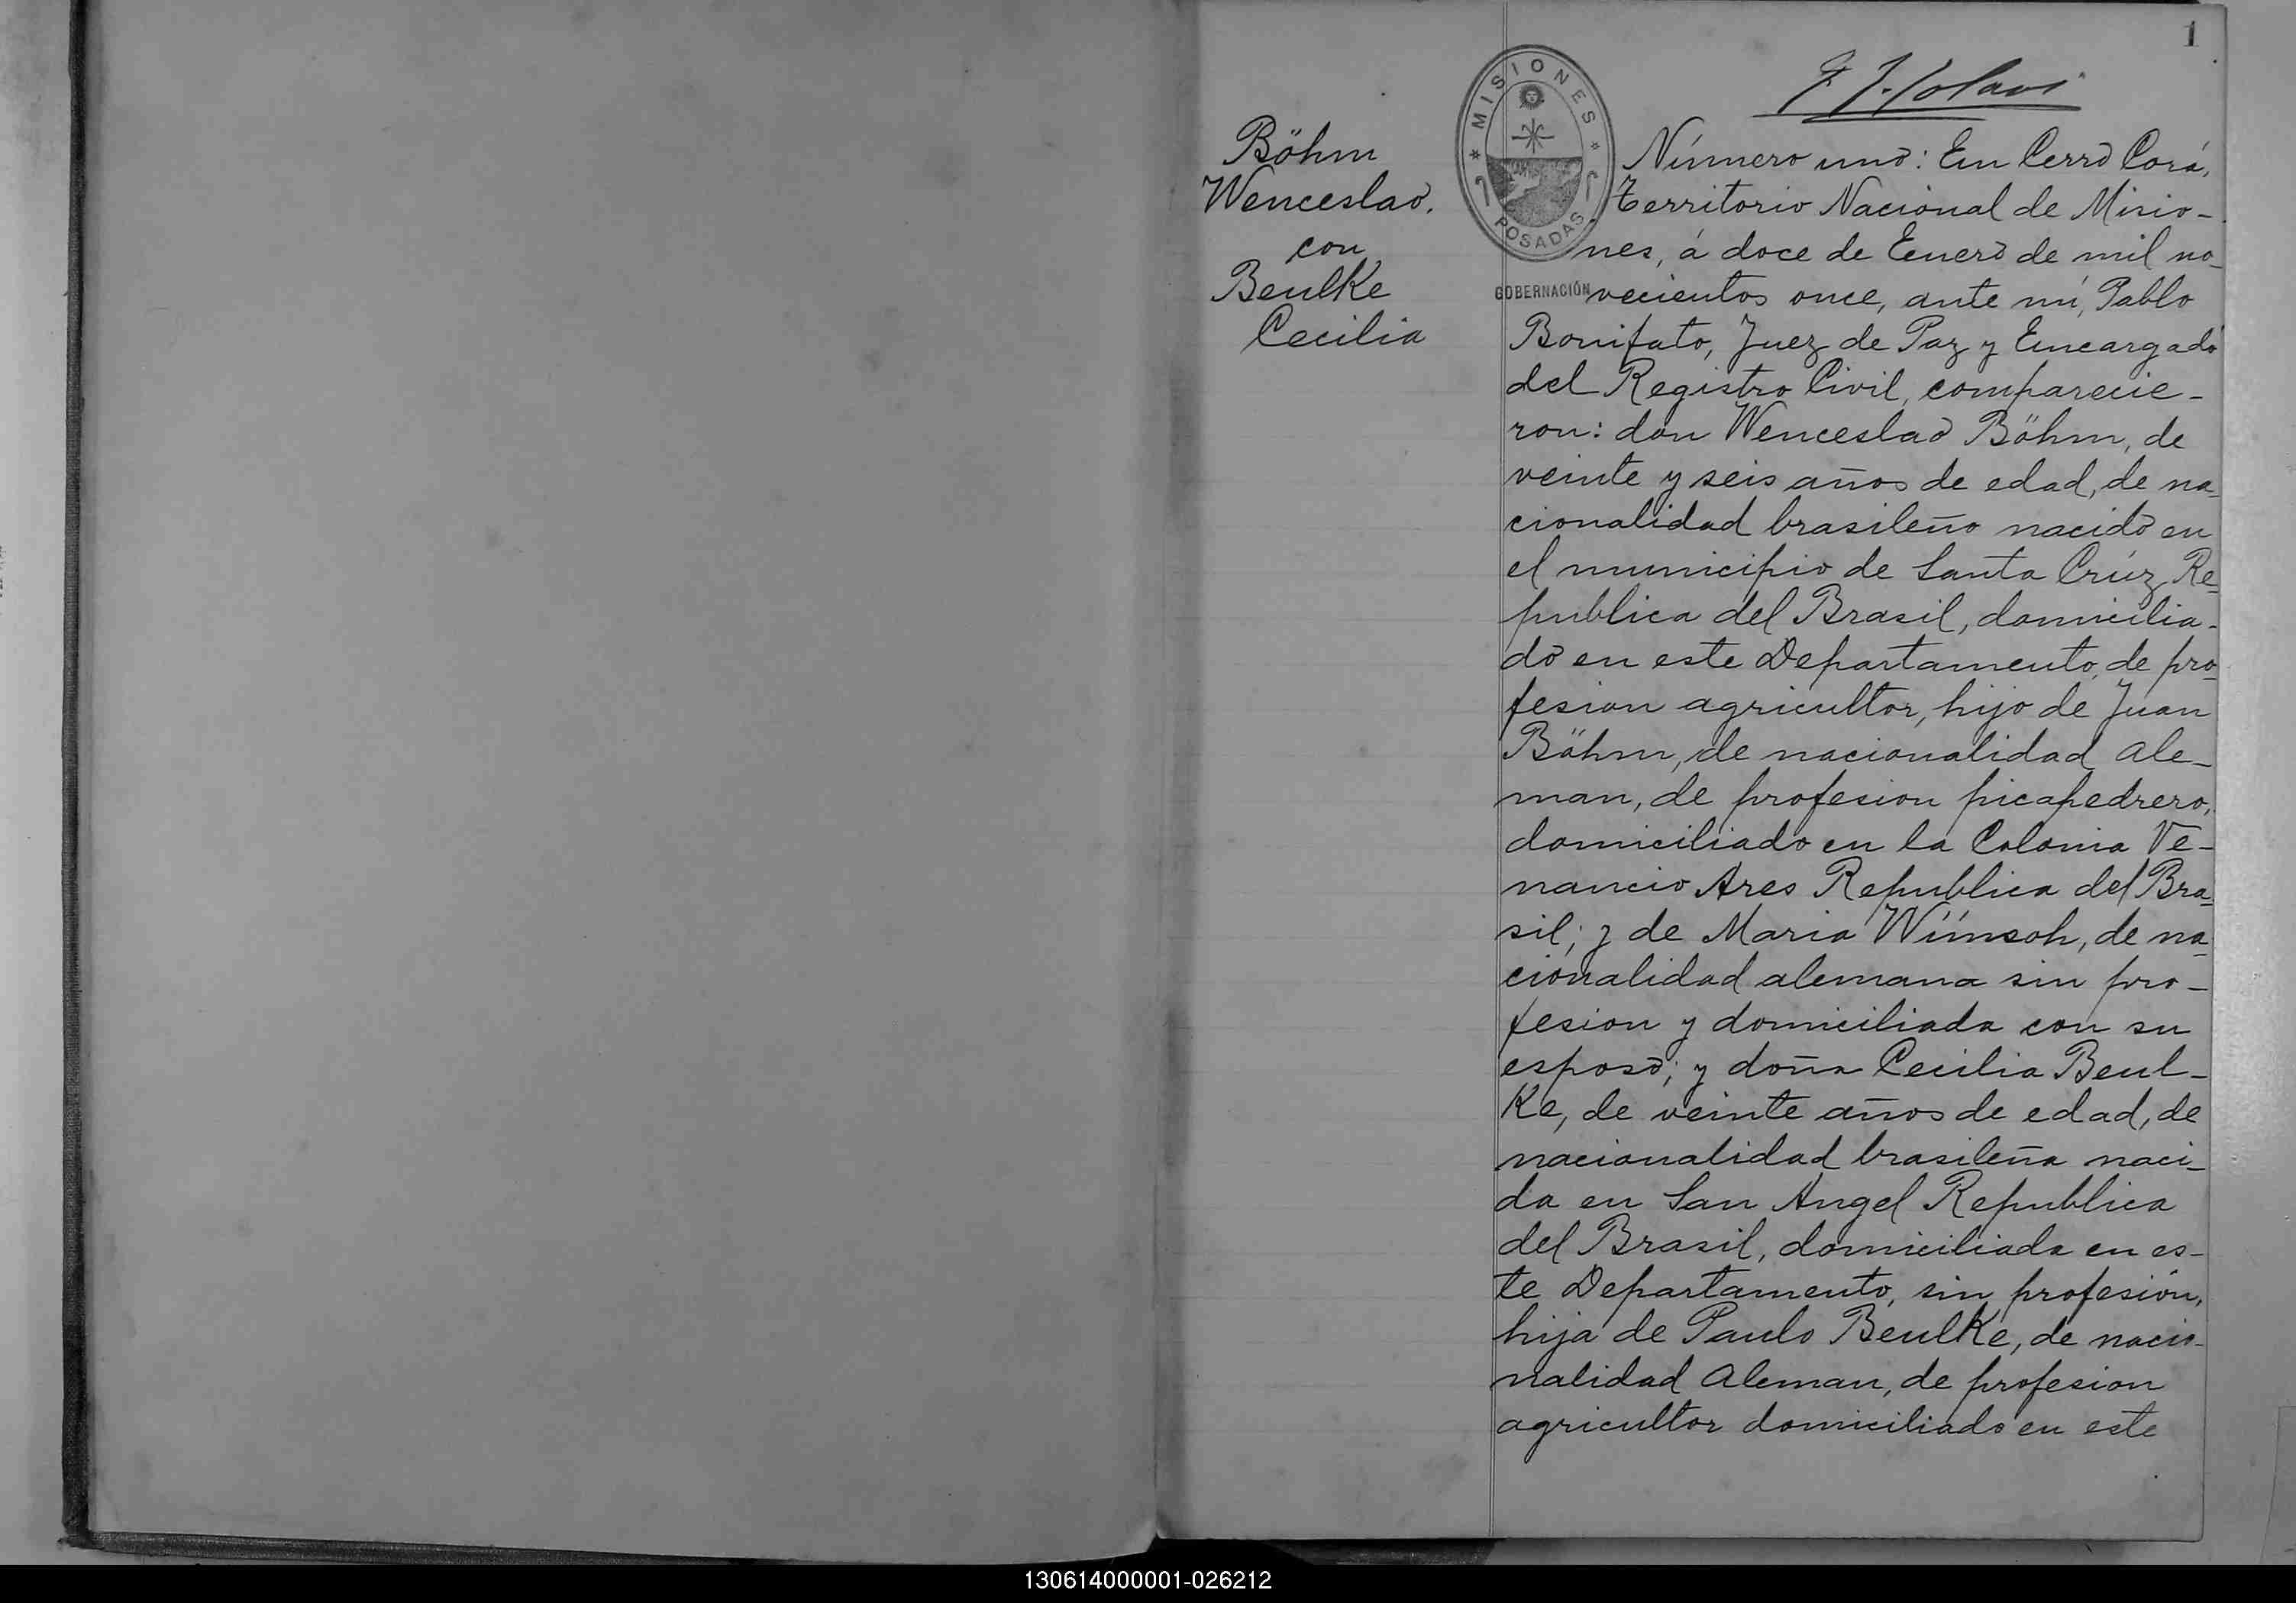 1
Böhm
Wenceslao.
con
Beulke
Cecilia
* MISIONES *
POSADAS
GOBERNACIÓN
Número uno: En Cerro Corá,
Territorio Nacional de Misio-
nes, á doce de Enero de mil no-
vecientos once, ante mí, Pablo
Bonifato, Juez de Paz y Encargado
del Registro Civil, comparecie-
ron: don Wenceslao Böhm, de
veinte y seis años de edad, de na-
cionalidad brasileño nacido en
el municipio de Santa Crúz, Re-
publica del Brasil, domicilia-
do en este Departamento, de pro-
fesion agricultor, hijo de Juan
Böhm, de nacionalidad Ale-
man, de profesion picapedrero,
domiciliado en la Colonia Ve-
nancio Ares Republica del Bra-
sil; y de Maria Wünsoh, de na-
cionalidad alemana sin pro-
fesion y domiciliada con su
esposo; y doña Cecilia Beul-
Ke, de veinte años de edad, de
nacionalidad brasileña naci-
da en San Angel Republica
del Brasil, domiciliada en es-
te Departamento, sin profesión,
hija de Paulo Beulke, de nacio-
nalidad Aleman, de profesion
agricultor domiciliado en este
130614000001-026212